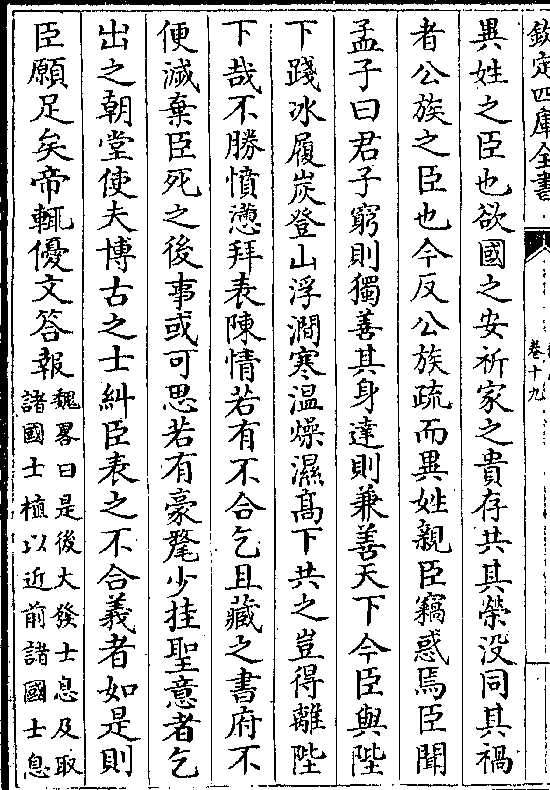 欽定四庫全書
卷十九
異姓之臣也欲國之安祈家之貴存共其榮没同其禍
者公族之臣也今反公族疏而異姓親臣竊惑焉臣聞
孟子曰君子窮則獨善其身達則兼善天下今臣與陛
下踐冰履炭登山浮澗寒温燥濕髙下共之豈得離陛
下哉不勝憤懣拜表陳情若有不合乞且藏之書府不
便滅棄臣死之後事或可思若有豪氂少挂聖意者乞
出之朝堂使夫博古之士糾臣表之不合義者如是則
臣願足矣帝輒優文答報
魏畧曰是後大發士息及取
諸國士植以近前諸國士息